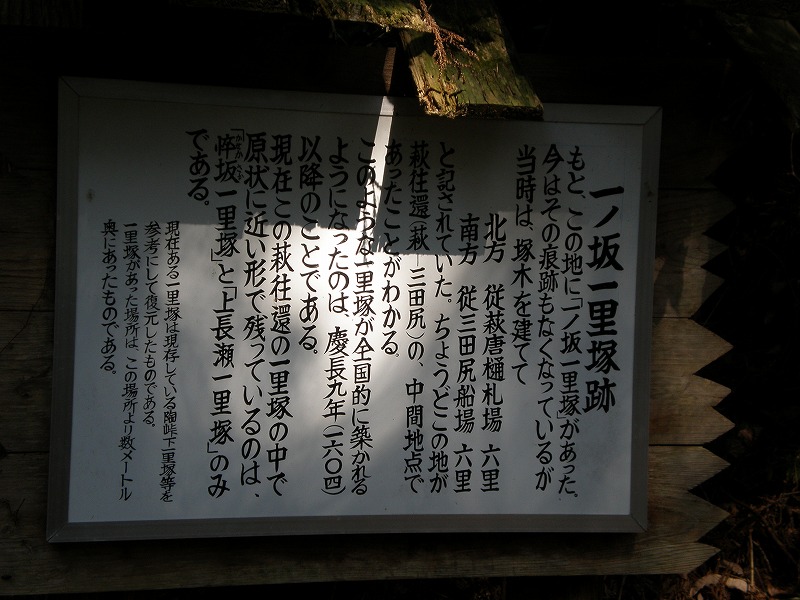 一ノ坂一里塚跡
もと、この地に「一ノ坂一里塚」があった、
今はその痕跡もなくなっているが
当時は、塚木を建てて
北方 従萩唐樋札場 六里
南方 従三田尻船場 六里
と記されていた、ちょうどこの地が
萩往還(萩―三田尻)の、中間地点で
あったことがわかる。
このような一里塚が全国的に築かれる
ようになったのは、慶長九年(一六〇四)
以降のことである。
現在この萩往還の一里塚の中で
原状に近い形で残っているのは、
「悴坂一里塚」と「上長瀬一里塚」のみ
である。
現在ある一里塚は現存している陶峠下一里塚等を
参考にして復元したものである。
一里塚があった場所は、この場所より数メートル
奥にあったものである。